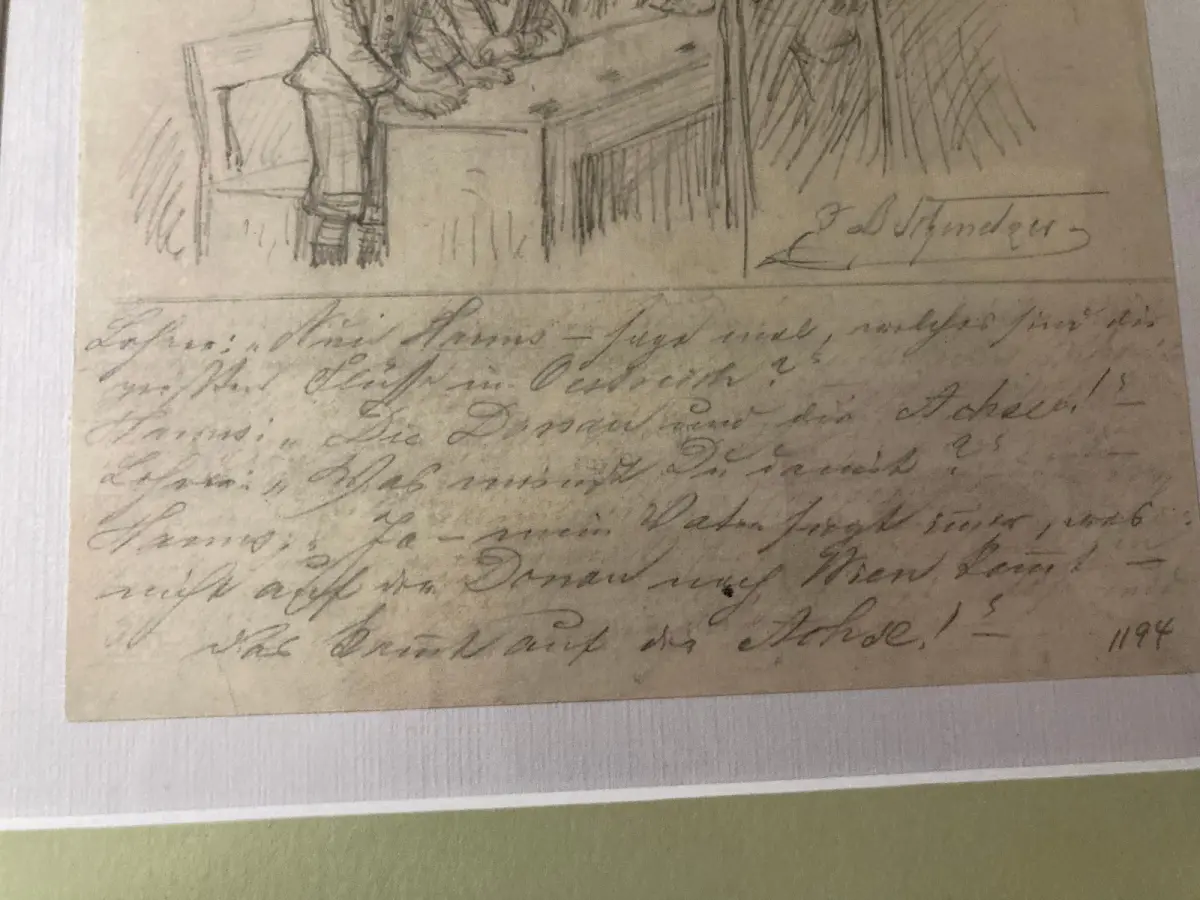 Lehrer: „Nun Hanns – sage mal, welches sind die
grössten Flüsse in Oestreich?"
Hanns: „Die Donau und die Achse!" –
Lehrer: „Was meinst Du damit?"
Hanns: „Ja – mein Vater sagt imer, was
nicht auf der Donau nach Wien kom̄t –
das kom̄t auf der Achse!" –
1194